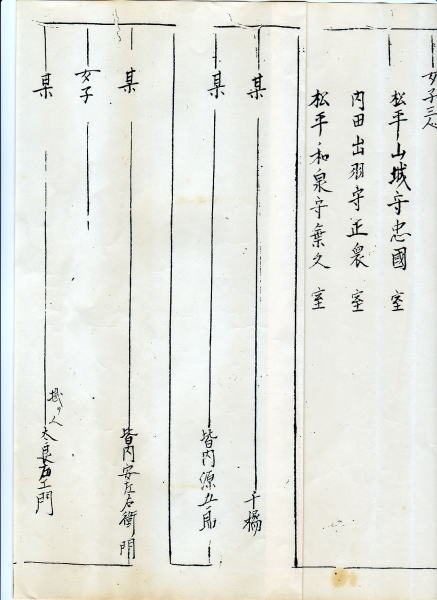 女子三人
松平山城守忠國 室
内田出羽守正衆 室
松平和泉守乗久 室
某
千橘
某
皆内源五郎
某
皆内安左衛門
女子
某
太良右エ門